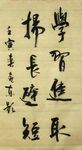 學習進取
揚長避短